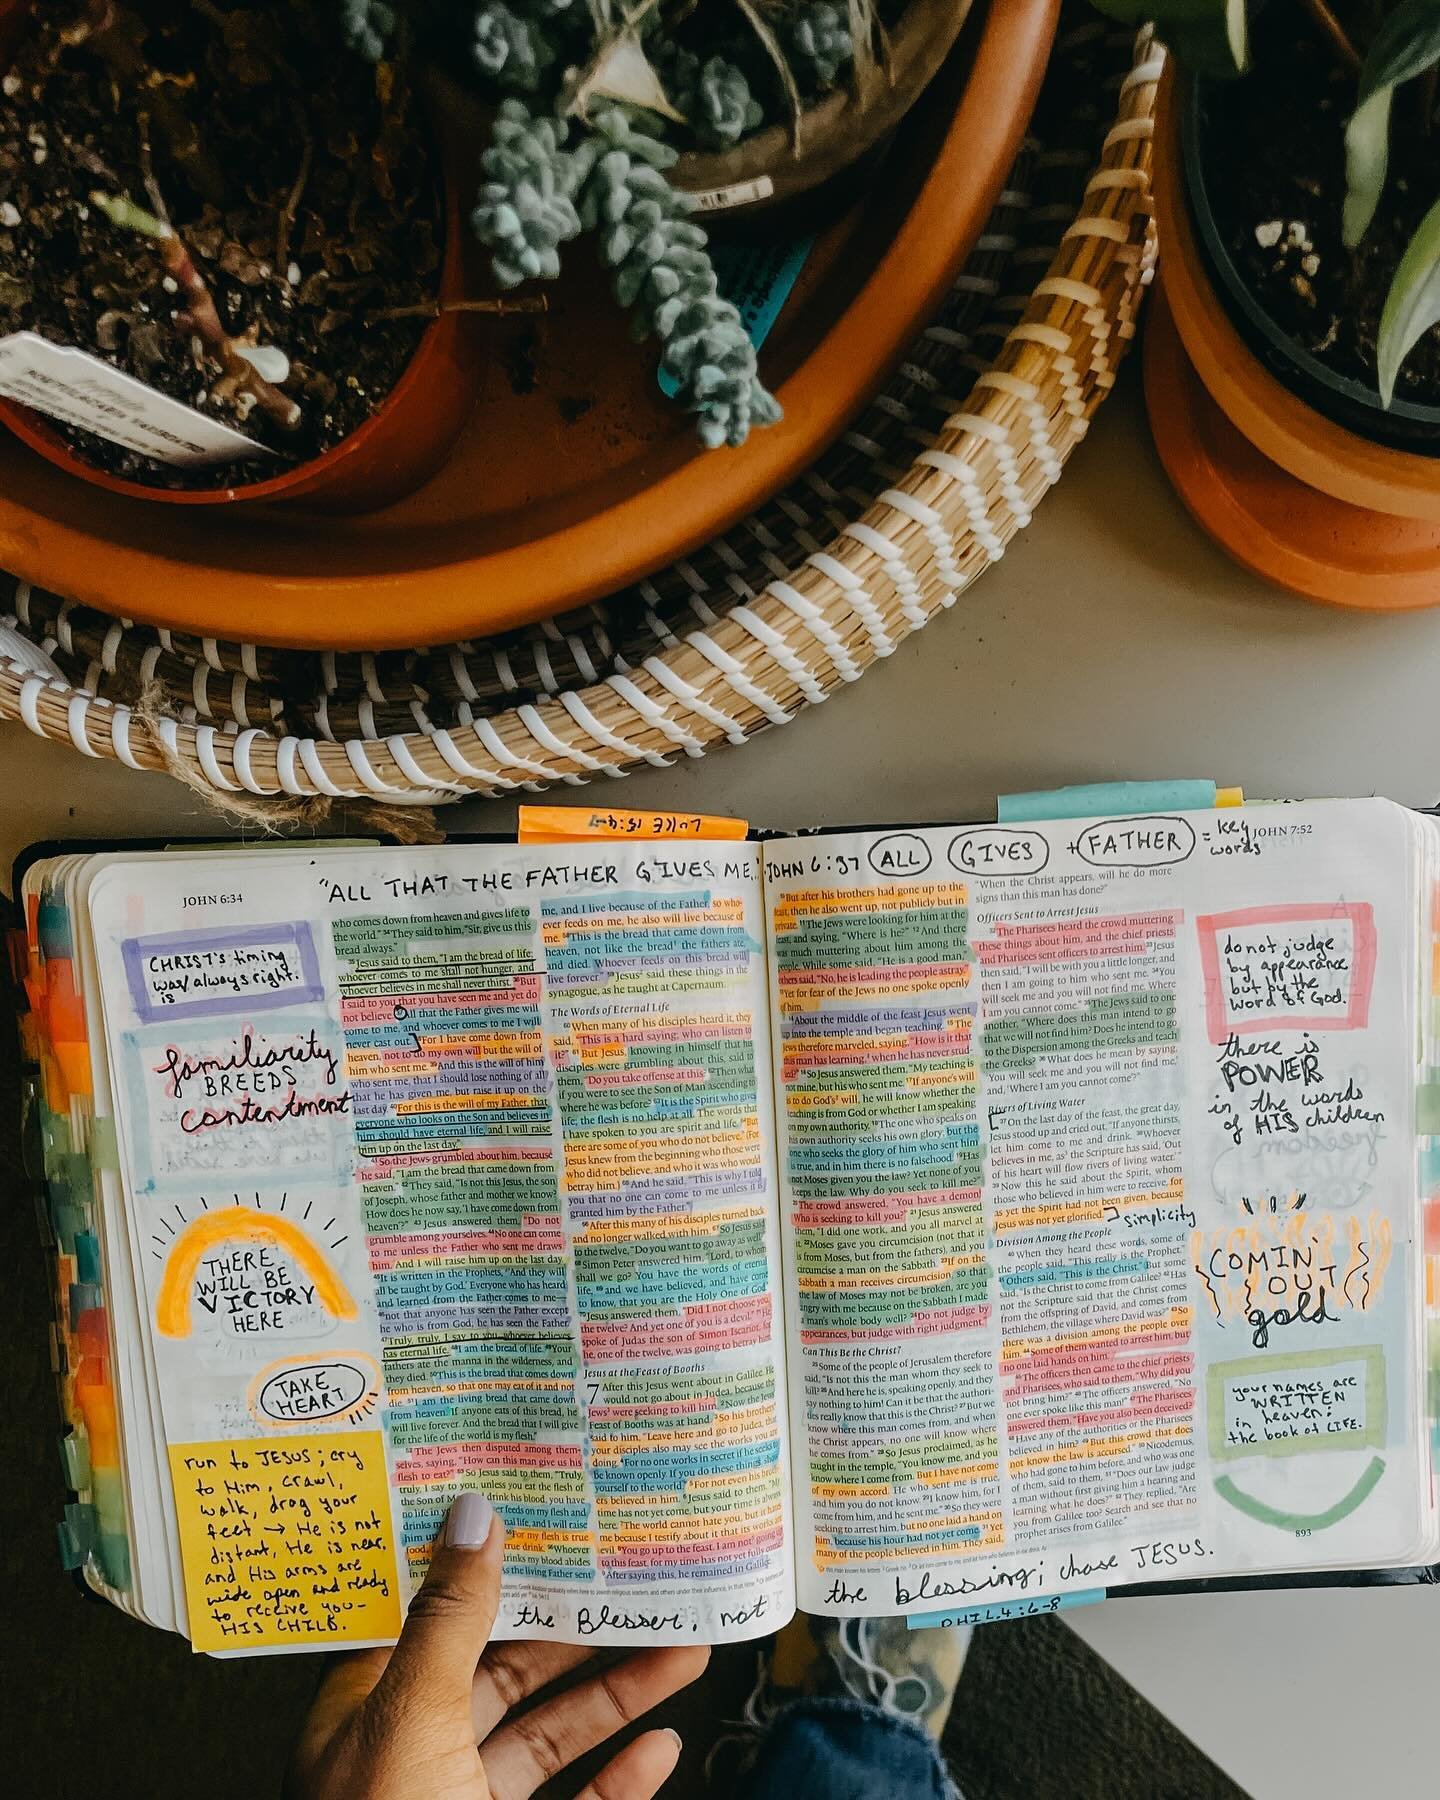 LUKE 15:4-7
JOHN 6:34
"ALL THAT THE FATHER GIVES ME.."
JOHN 6:37 ALL GIVES + FATHER = key words
JOHN 7:52
CHRIST's timing
was/always right.
is
familiarity
BREEDS
contentment
THERE
WILL BE
VICTORY
HERE
TAKE
HEART
run to JESUS; cry
to Him, crawl,
walk, drag your
feet → He is not
distant, He is near,
and His arms are
wide open and ready
to receive you-
HIS CHILD.
who comes down from heaven and gives life to
the world." 34They said to him, "Sir, give us this
bread always."
35Jesus said to them, "I am the bread of life;
whoever comes to me shall not hunger, and
whoever believes in me shall never thirst. 36But
I said to you that you have seen me and yet do
not believe. All that the Father gives me will
come to me, and whoever comes to me I will
never cast out. 38For I have come down from
heaven, not to do my own will but the will of him
who sent me. 39And this is the will of him
who sent me, that I should lose nothing of all
that he has given me, but raise it up on the
last day. 40For this is the will of my Father, that
everyone who looks on the Son and believes in
him should have eternal life, and I will raise
him up on the last day."
41So the Jews grumbled about him, because
he said, "I am the bread that came down from
heaven." 42They said, "Is not this Jesus, the son
of Joseph, whose father and mother we know?
How does he now say, 'I have come down from
heaven'?" 43Jesus answered them, "Do not
grumble among yourselves. 44No one can come
to me unless the Father who sent me draws
him. And I will raise him up on the last day.
45It is written in the Prophets, 'And they will
all be taught by God.' Everyone who has heard
and learned from the Father comes to me—
46not that anyone has seen the Father except
he who is from God; he has seen the Father.
47Truly, truly, I say to you, whoever believes
has eternal life. 48I am the bread of life. 49Your
fathers ate the manna in the wilderness, and
they died. 50This is the bread that comes down
from heaven, so that one may eat of it and not
die. 51I am the living bread that came down
from heaven. If anyone eats of this bread, he
will live forever. And the bread that I will give
for the life of the world is my flesh."
52The Jews then disputed among them-
selves, saying, "How can this man give us his
flesh to eat?" 53So Jesus said to them, "Truly,
truly, I say to you, unless you eat the flesh of
the Son of
me, and I live because of the Father, so who-
ever feeds on me, he also will live because of
me. 58This is the bread that came down from
heaven, not like the bread the fathers ate,
and died. Whoever feeds on this bread will
live forever." 59Jesus said these things in the
synagogue, as he taught at Capernaum.
The Words of Eternal Life
60When many of his disciples heard it, they
said, "This is a hard saying; who can listen to
it?" 61But Jesus, knowing in himself that his
disciples were grumbling about this, said to
them, "Do you take offense at this? 62Then what
if you were to see the Son of Man ascending to
where he was before? 63It is the Spirit who gives
life; the flesh is no help at all. The words that
I have spoken to you are spirit and life. 64But
there are some of you who do not believe." (For
Jesus knew from the beginning who those were
who did not believe, and who it was who would
betray him.) 65And he said, "This is why I told
you that no one can come to me unless it is
granted him by the Father."
66After this many of his disciples turned back
and no longer walked with him. 67So Jesus said
to the twelve, "Do you want to go away as well?"
68Simon Peter answered him, "Lord, to whom
shall we go? You have the words of eternal
life, 69and we have believed, and have come
to know, that you are the Holy One of God."
70Jesus answered them, "Did I not choose you,
the twelve? And yet one of you is a devil." 71He
spoke of Judas the son of Simon Iscariot, for
he, one of the twelve, was going to betray him.
Jesus at the Feast of Booths
7 After this Jesus went about in Galilee. He
would not go about in Judea, because the
Jews were seeking to kill him. 2Now the Jews'
Feast of Booths was at hand. 3So his brothers
said to him, "Leave here and go to Judea, that
your disciples also may see the works you are
doing. 4For no one works in secret if he seeks to
be known openly. If you do these things, show
yourself to the world." 5For not even his broth-
ers believed in him. 6Jesus said to them, "My
time has not yet come, but your time is always
here. 7The world cannot hate you, but it hates
me because I testify about it that its works are
evil. 8You go up to the feast. I am not going up
to this feast, for my time has not yet fully come."
9After saying this, he remained in Galilee.
the Blesser, not
10But after his brothers had gone up to the
feast, then he also went up, not publicly but in
private. 11The Jews were looking for him at the
feast, and saying, "Where is he?" 12And there
was much muttering about him among the
people. While some said, "He is a good man,"
others said, "No, he is leading the people astray."
13Yet for fear of the Jews no one spoke openly
of him.
14About the middle of the feast Jesus went
up into the temple and began teaching. 15The
Jews therefore marveled, saying, "How is it that
this man has learning, when he has never stud-
ied?" 16So Jesus answered them, "My teaching is
not mine, but his who sent me. 17If anyone's will
is to do God's will, he will know whether the
teaching is from God or whether I am speaking
on my own authority. 18The one who speaks on
his own authority seeks his own glory, but the
one who seeks the glory of him who sent him
is true, and in him there is no falsehood. 19Has
not Moses given you the law? Yet none of you
keeps the law. Why do you seek to kill me?"
20The crowd answered, "You have a demon!
Who is seeking to kill you?" 21Jesus answered
them, "I did one work, and you all marvel at
it. 22Moses gave you circumcision (not that it
is from Moses, but from the fathers), and you
circumcise a man on the Sabbath. 23If on the
Sabbath a man receives circumcision, so that
the law of Moses may not be broken, are you
angry with me because on the Sabbath I made
a man's whole body well? 24Do not judge by
appearances, but judge with right judgment."
Can This Be the Christ?
25Some of the people of Jerusalem therefore
said, "Is not this the man whom they seek to
kill? 26And here he is, speaking openly, and they
say nothing to him! Can it be that the authori-
ties really know that this is the Christ? 27But we
know where this man comes from, and when
the Christ appears, no one will know where
he comes from." 28So Jesus proclaimed, as he
taught in the temple, "You know me, and you
know where I come from. But I have not come
of my own accord. He who sent me is true,
and him you do not know. 29I know him, for I
come from him, and he sent me." 30So they were
seeking to arrest him, but no one laid a hand on
him, because his hour had not yet come. 31Yet
many of the people believed in him. They said,
"When the Christ appears, will he do more
signs than this man has done?"
Officers Sent to Arrest Jesus
32The Pharisees heard the crowd muttering
these things about him, and the chief priests
and Pharisees sent officers to arrest him. 33Jesus
then said, "I will be with you a little longer, and
then I am going to him who sent me. 34You
will seek me and you will not find me. Where
I am you cannot come." 35The Jews said to one
another, "Where does this man intend to go
that we will not find him? Does he intend to go
to the Dispersion among the Greeks and teach
the Greeks? 36What does he mean by saying,
'You will seek me and you will not find me,'
and, 'Where I am you cannot come'?"
Rivers of Living Water
37On the last day of the feast, the great day,
Jesus stood up and cried out, "If anyone thirsts,
let him come to me and drink. 38Whoever
believes in me, as the Scripture has said, 'Out
of his heart will flow rivers of living water.'"
39Now this he said about the Spirit, whom
those who believed in him were to receive, for
as yet the Spirit had not been given, because
Jesus was not yet glorified.
simplicity
Division Among the People
40When they heard these words, some of
the people said, "This really is the Prophet."
41Others said, "This is the Christ." But some
said, "Is the Christ to come from Galilee? 42Has
not the Scripture said that the Christ comes
from the offspring of David, and comes from
Bethlehem, the village where David was?" 43So
there was a division among the people over
him. 44Some of them wanted to arrest him, but
no one laid hands on him.
45The officers then came to the chief priests
and Pharisees, who said to them, "Why did you
not bring him?" 46The officers answered, "No
one ever spoke like this man!" 47The Pharisees
answered them, "Have you also been deceived?
48Have any of the authorities or the Pharisees
believed in him? 49But this crowd that does
not know the law is accursed." 50Nicodemus,
who had gone to him before, and who was one
of them, said to them, 51"Does our law judge
a man without first giving him a hearing and
learning what he does?" 52They replied, "Are
you from Galilee too? Search and see that no
prophet arises from Galilee."
do not judge
by appearance
but by the
word of God.
there is
POWER
in the words
of HIS children
COMIN'
OUT
gold
your names are
WRITTEN
in heaven;
the book of LIFE.
893
the blessing; chase JESUS.
PHIL. 4:6-8